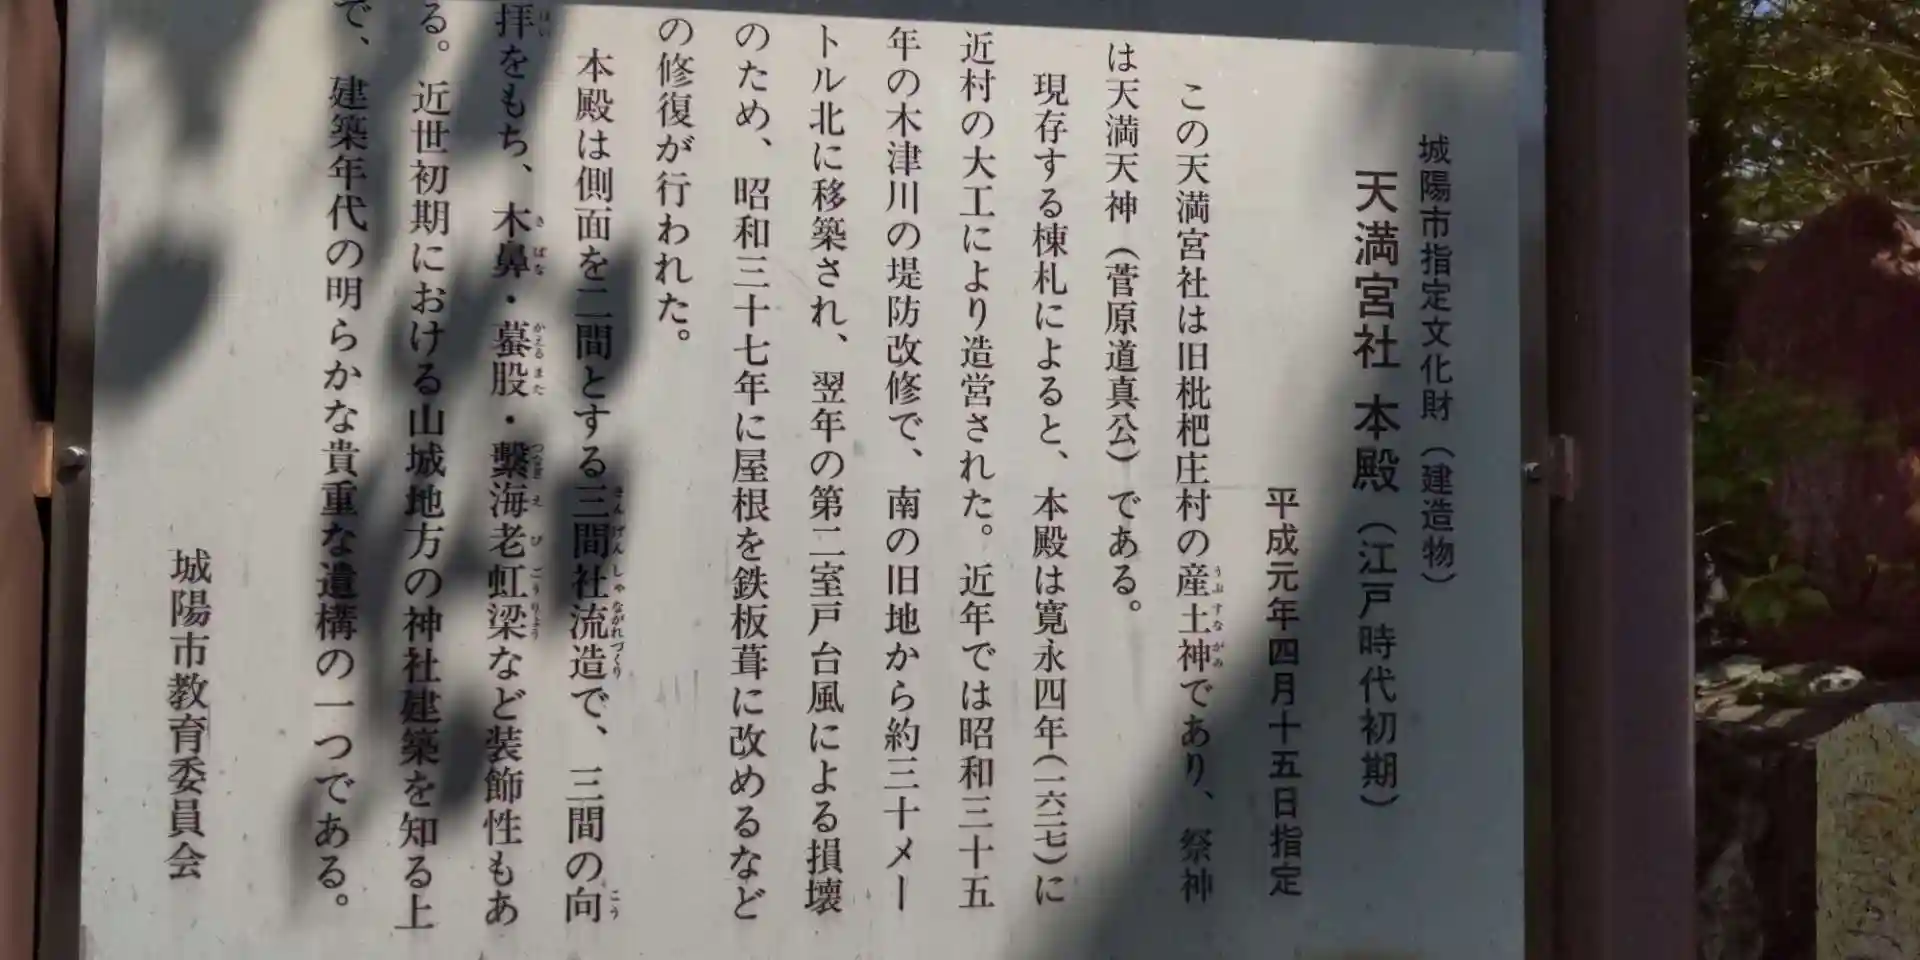 城陽市指定文化財（建造物）
天満宮社 本殿（江戸時代初期）
平成元年四月十五日指定
この天満宮社は旧枇杷庄村の産土神であり、祭神
うぶすながみ
は天満天神（菅原道真公）である。
現存する棟札によると、本殿は寛永四年（一六二七）に
近村の大工により造営された。近年では昭和三十五
年の木津川の堤防改修で、南の旧地から約三十メー
トル北に移築され、翌年の第二室戸台風による損壊
のため、昭和三十七年に屋根を鉄板葺に改めるなど
の修復が行われた。
本殿は側面を二間とする三間社流造で、三間の向
さんげんしゃながれづくり
こう
拝をもち、木鼻・蟇股・繋海老虹梁など装飾性もあ
はい
きばな
かえるまた
つなぎえびこうりょう
る。近世初期における山城地方の神社建築を知る上
で、建築年代の明らかな貴重な遺構の一つである。
城陽市教育委員会